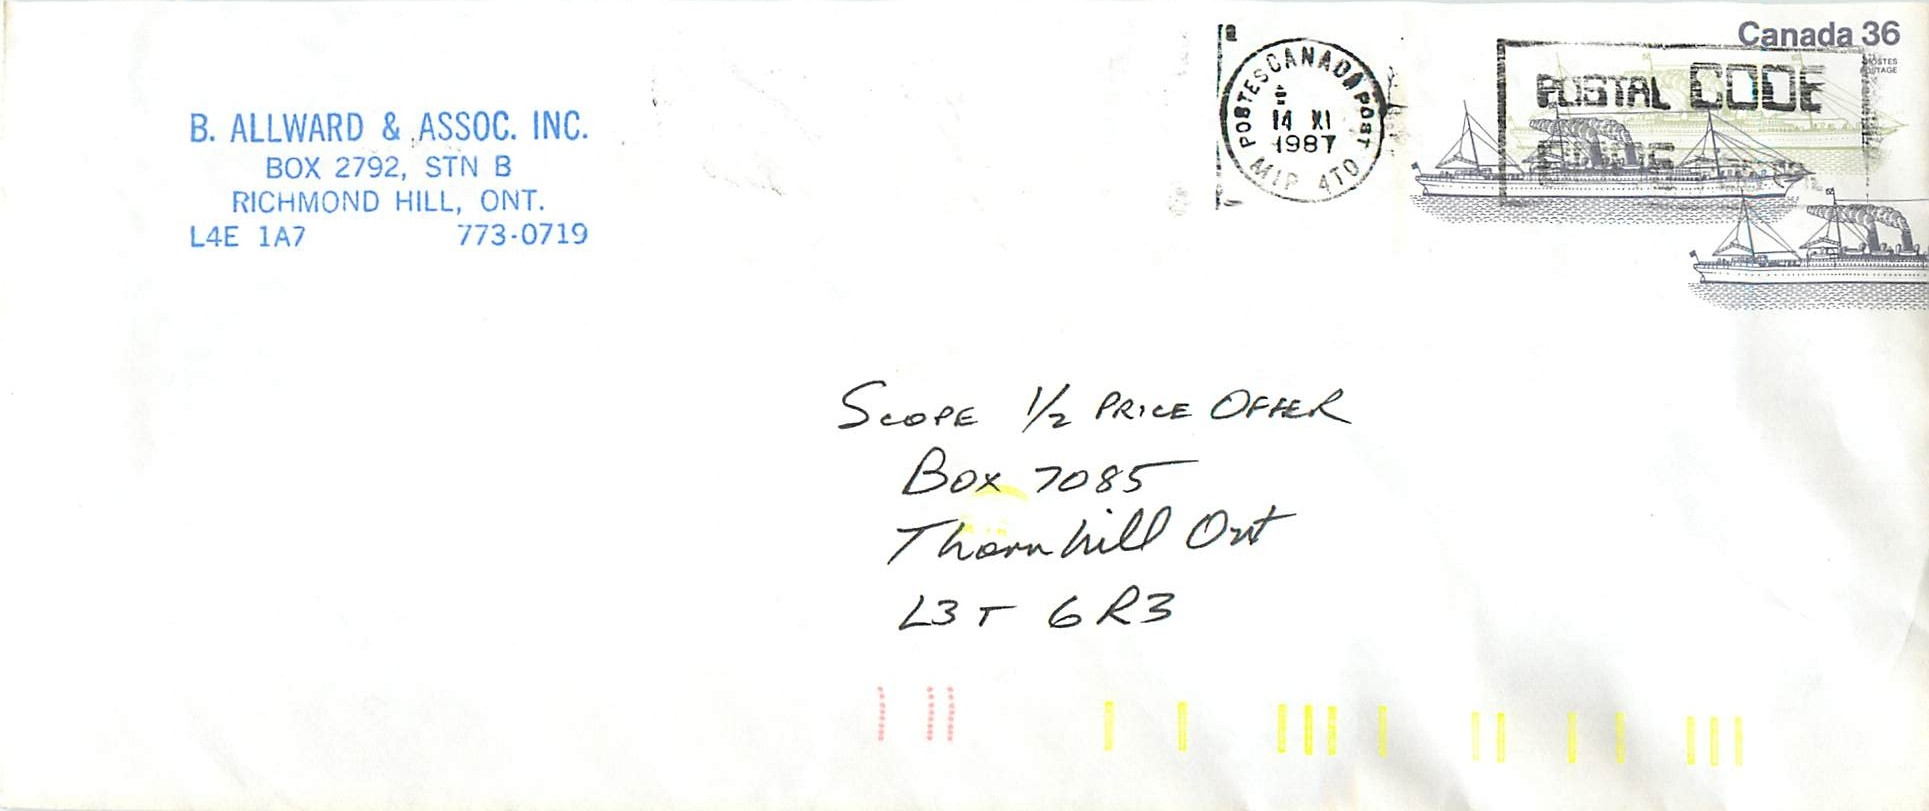 Canada 36
POSTES
POSTAGE
POSTAL CODE
CODE
POSTES CANADA POST
14 XI
1987
M1P 4T0
B. ALLWARD & ASSOC. INC.
BOX 2792, STN B
RICHMOND HILL, ONT.
L4E 1A7 773-0719
SCOPE 1/2 PRICE OFFER
Box 7085
Thornhill Ont
L3T 6R3